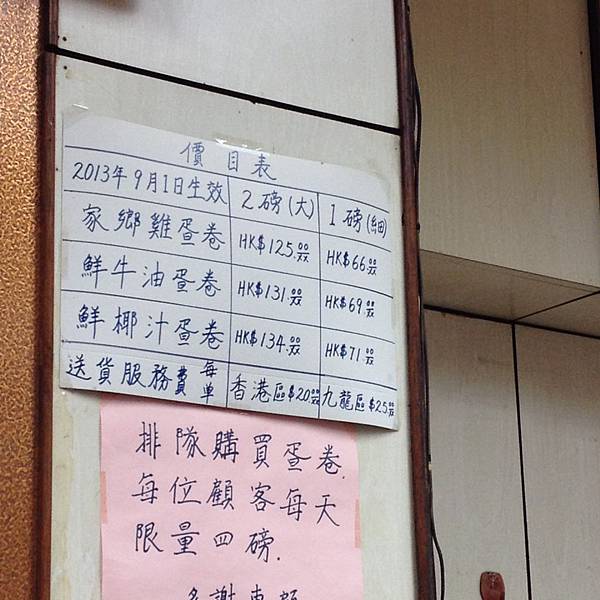 價目表
2013年9月1日生效 2磅(大) 1磅(細)
家鄉雞蛋卷 HK$125.00 HK$66.00
鮮牛油蛋卷 HK$131.00 HK$69.00
鮮椰汁蛋卷 HK$134.00 HK$71.00
送貨服務費每单 香港區$20.00 九龍區$25.00
排隊購買蛋卷,
每位顧客每天
限量四磅.
多謝惠顧